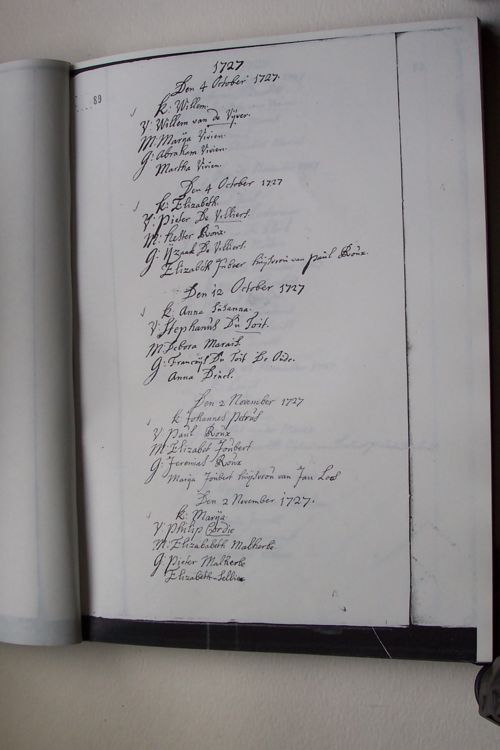 1727
89
Den 4 October 1727.
K: Willem.
V: Willem van de Vyver.
M: Marya Vivien.
G: Abraham Vivien.
Martha Vivien.
Den 4 October 1727
K: Elizabeth.
V: Pieter De Villiers.
M: Hester Roux.
G: Yzaak De Villiers.
Elizabeth huysvrou van Paul Roux.
Den 12 October 1727
K: Anna Susanna.
V: Stephanus Du Toit.
M: Debora Marais
G: Francoys Du Toit De Oude.
Anna
Den 2 November 1727
K Johannes Petrus
V Paul Roux
M: Elizabet Joubert
G: Jeremias Roux
Maria Joubert huysvrou van Jan Loos
Den 2 November 1727.
K: Marya
V: Philip Cordie
M: Elizababeth Malherbe
G Pieter Malherbe
Elizabeth